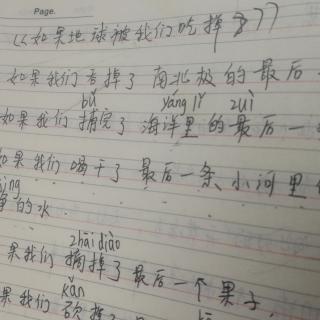 Page.
《如果地球被我们吃掉了》
如果我们吃掉了南北极的最后
bǔ yáng lǐ zuì
如果我们捕完了海洋里的最后一
如果我们喝干了最后一条小河里
jìng
净的水
zhāi diào
果我们摘掉了最后一个果子,
kǎn
果我们砍掉了